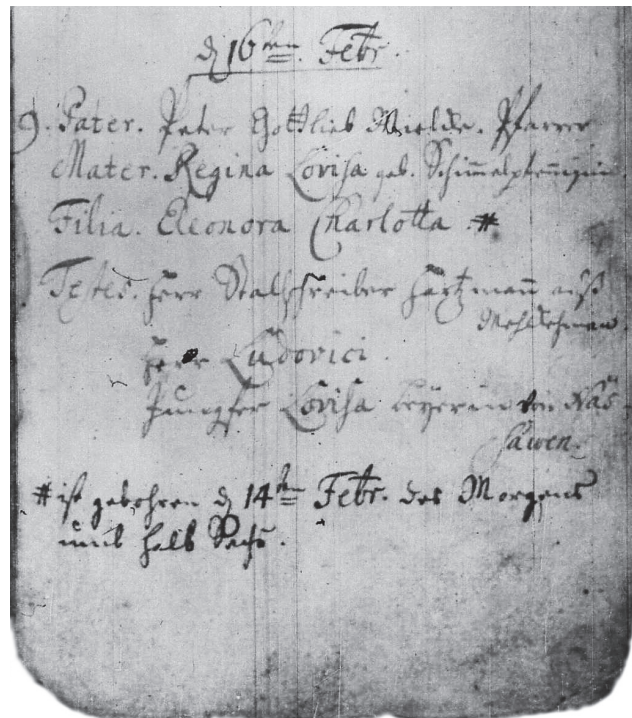 d 16ten. Febr.
9. Pater. Peter Gottlieb Mielcke. Pfarrer
Mater. Regina Lovisa geb. Schimmelpfennigin
Filia. Eleonora Charlotta. #
Testes. Herr Stallschreiber Hartmann auß
Mehlkehmen
Herr Ludovici.
Jungfer Lovisa Beyerin von Nas-
sawen.
# ist gebohren d 14ten Febr. des Morgens
umb halb Sechs.